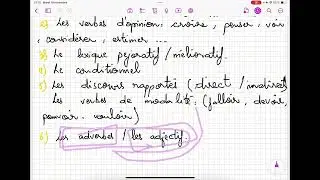 2) Les verbes d'opinion: croire, penser, voir
, considérer, estimer ...
3) Le lexique péjoratif / mélioratif.
4) Le conditionnel
5) Les discours rapportés (direct / indirect)
Les verbes de modalité: (falloir, devoir,
pouvoir, vouloir)
6) Les adverbes / les adjectif.